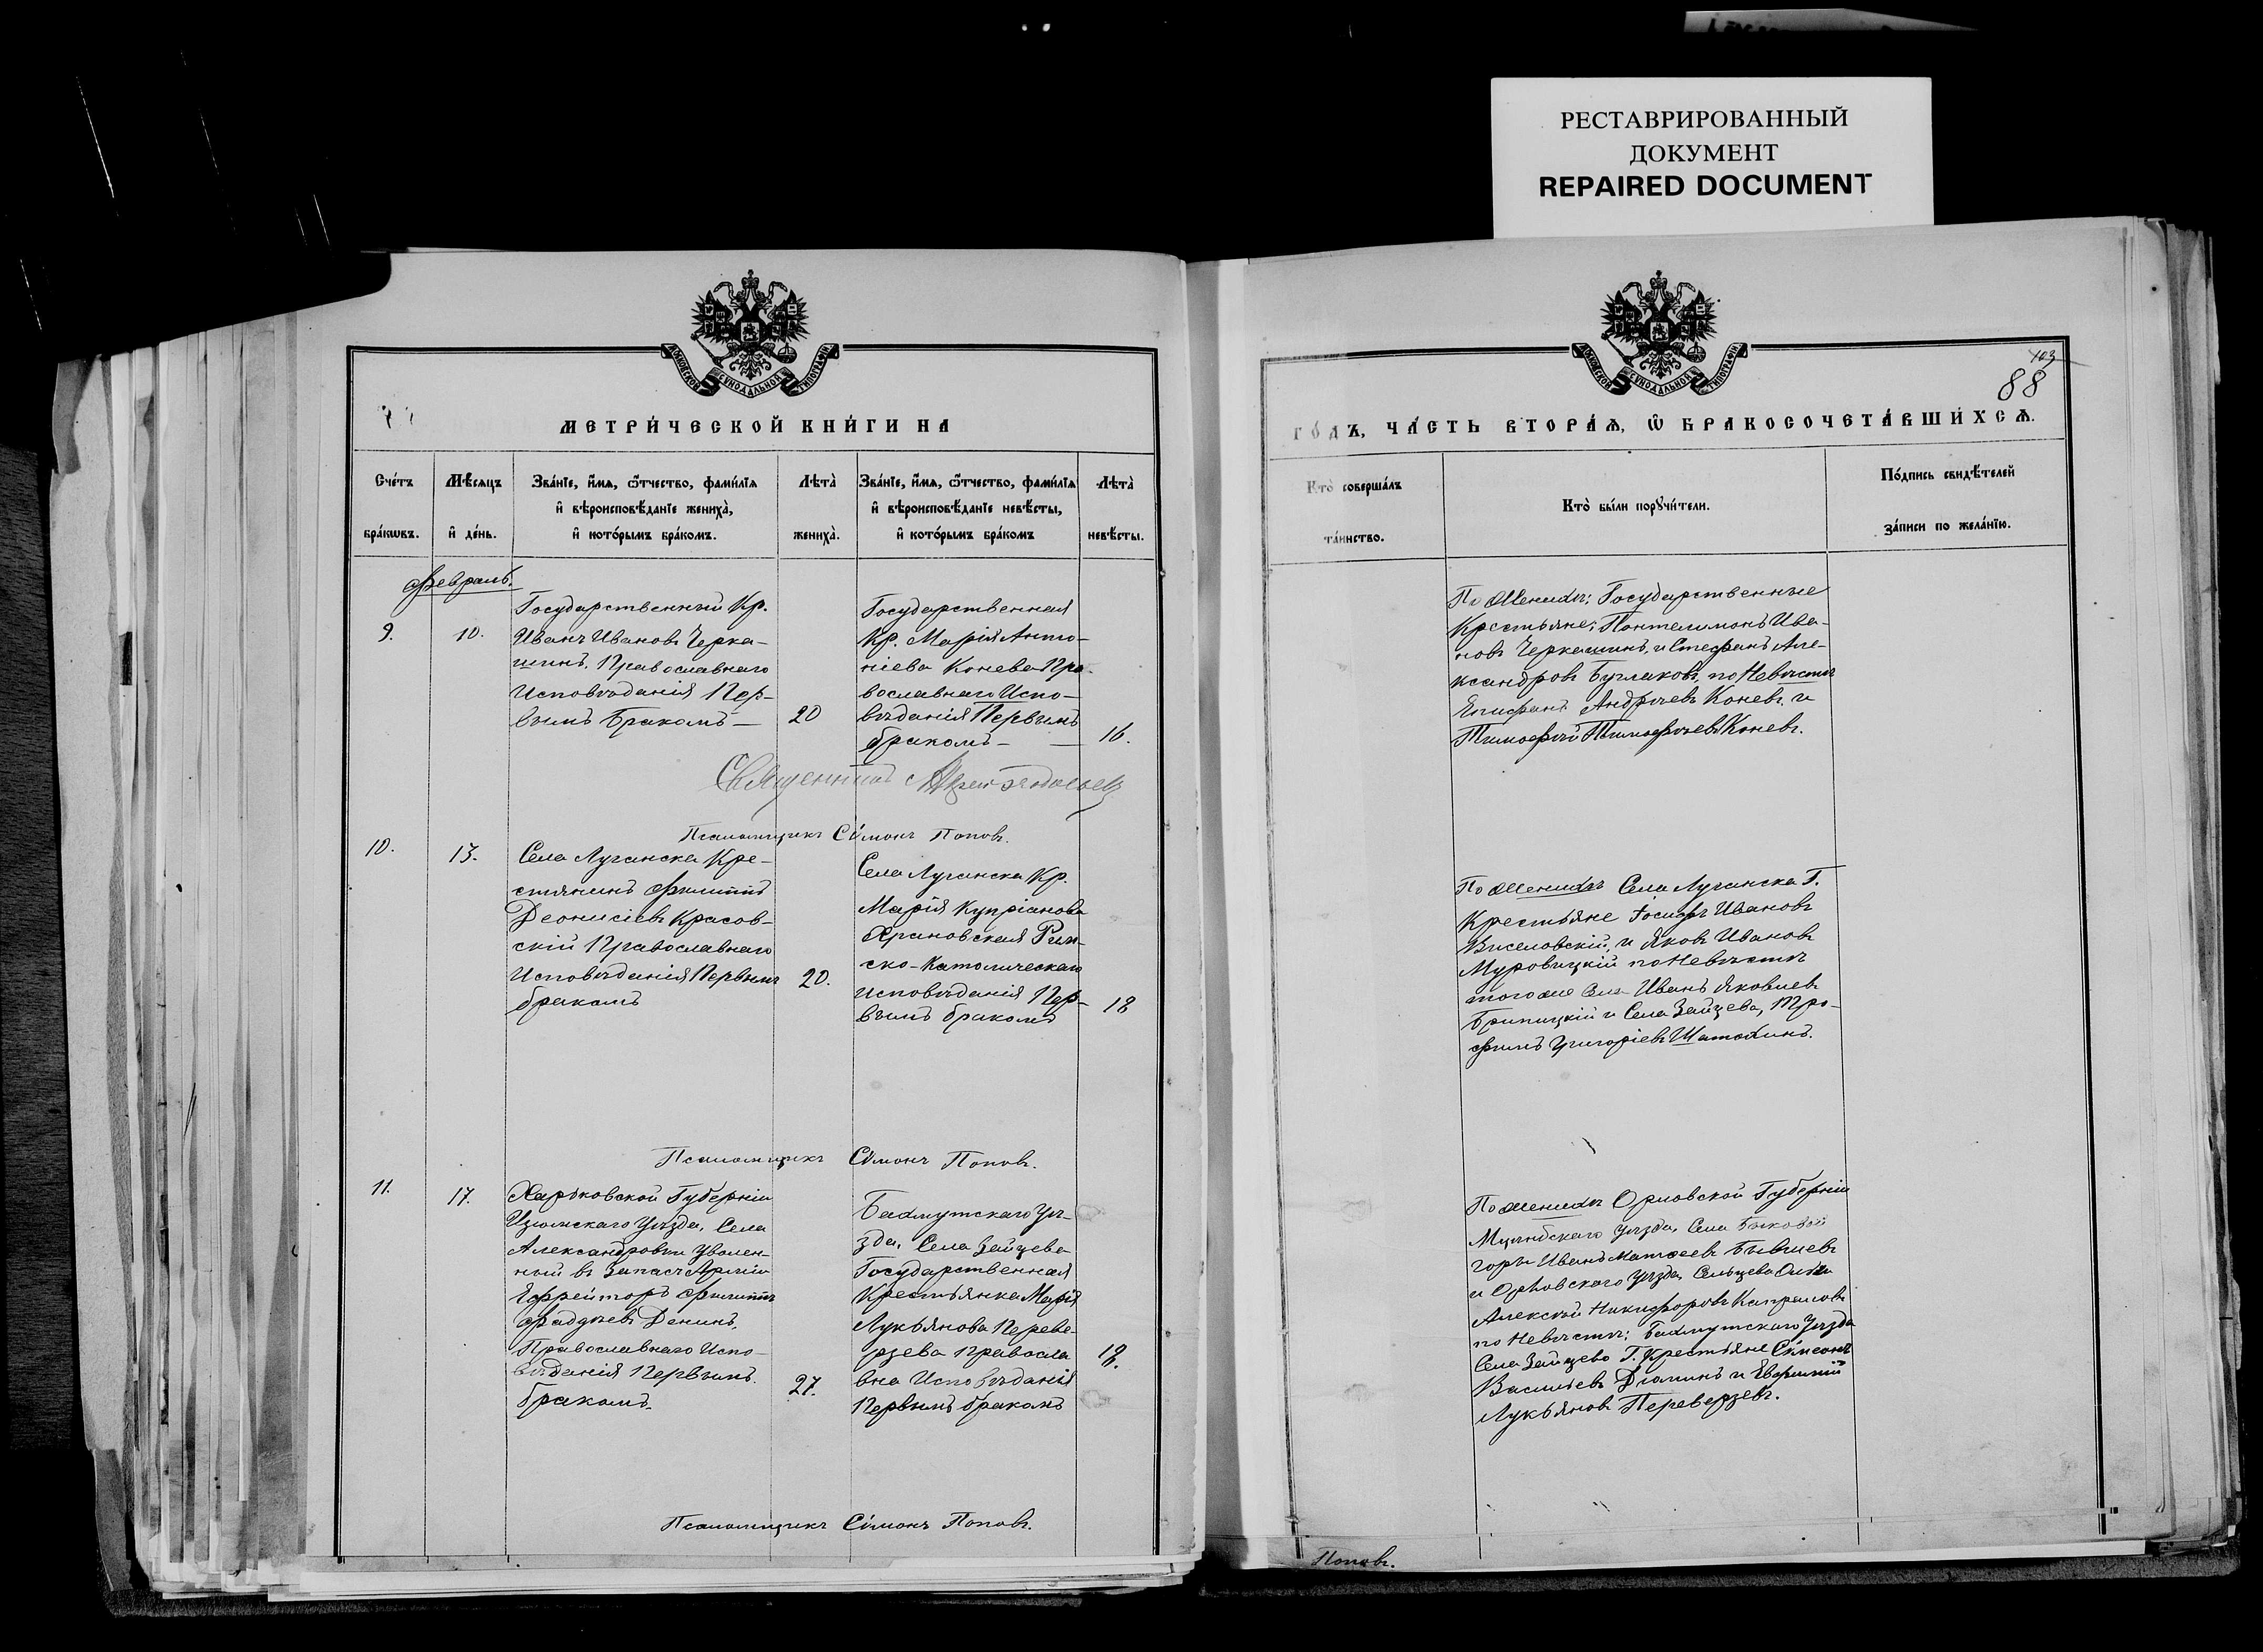 РЕСТАВРИРОВАННЫЙ
ДОКУМЕНТ
REPAIRED DOCUMENT
МОСКОВСКОЙ СѴНОДАЛЬНОЙ ТИПОГРАФІИ
МЕТРИ́ЧЕСКОЙ КНИ́ГИ НА
Сче́тъ бра́кωвъ.
Мѣ́сѧцъ и҆ де́нь.
Зва́нїе, и҆́мѧ, ѻ҆́тчество, фами́лїѧ
и҆ вѣроисповѣ́данїе жениха̀,
и҆ кото́рымъ бра́комъ.
Лѣта̀ жениха̀.
Зва́нїе, и҆́мѧ, ѻ҆́тчество, фами́лїѧ
и҆ вѣроисповѣ́данїе невѣ́сты,
и҆ кото́рымъ бра́комъ
Лѣта̀ невѣ́сты.
Февраль.
9.
10.
Государственный Кр.
Иванъ Ивановъ Черка-
шинъ, Православнаго
Исповѣданія Пер-
вымъ бракомъ —
20
Государственная
Кр. Марія Анто-
ніева Конева Пра-
вославнаго Испо-
вѣданія Первымъ
бракомъ —
16.
Священникъ
Псаломщикъ Сѵмонъ Поповъ.
10.
13.
Села Луганска Кре-
стянинъ Филиппъ
Деонисіевъ Красов-
скій Православнаго
Исповѣданія Первымъ
бракомъ
20.
Села Луганска Кр.
Марія Купріанова
Храновская Рим-
ско-Католическаго
исповѣданія Пер-
вымъ бракомъ
18
Псаломщикъ Сѵмонъ Поповъ.
11.
17.
Харьковской Губерніи
Изюмскаго Уѣзда, Села
Александровки Уволен-
ный въ Запасъ Арміи
Ефрейторъ Филиппъ
Фаддѣевъ Денинъ,
Православнаго Испо-
вѣданія Первымъ
бракомъ.
27.
Бахмутскаго Уѣ-
зда, Села Зайцева
Государственная
Крестьянка Марія
Лукьянова Переве-
рзева Правосла
вна Исповѣданія
Первымъ бракомъ
Псаломщикъ Сѵмонъ Поповъ.
МОСКОВСКОЙ СѴНОДАЛЬНОЙ ТИПОГРАФІИ
103
88
ГО́ДЪ, ЧА́СТЬ ВТОРА́Ѧ, Ѽ БРАКОСОЧЕТА́ВШИХСѦ.
Кто̀ соверша́лъ
та́инство.
Кто̀ бы́ли порꙋчи́тели.
По́дпись свидѣ́телей
за́писи по жела́нїю.
По Женихѣ: Государственные
Крестьяне: Пантелимонъ Ива-
новъ Черкашинъ, и Стефанъ Але-
ксандровъ Бутлаковъ, по Невѣстѣ
Епифанъ Андрѣевъ Коневъ, и
Тимофѣй Тимофѣевъ Коневъ.
По Женихѣ Села Луганска Г.
Крестьяне Іосифъ Ивановъ
Висловскій, и Яковъ Ивановъ
Муровицкій по Невѣстѣ
того же Села Иванъ Яковлевъ
и Села Зайцева, Тро-
фимъ Григоріевъ Шатохинъ.
По Женихѣ Орловской Губерніи
Мценскаго уѣзда, Села
горы Иванъ Матвеевъ
и Орловскаго уѣзда, Сельцева
Алексѣй Никифоровъ
по Невѣстѣ: Бахмутскаго Уѣзда
Села Зайцево Г. Крестьяне Сѵмеонъ
Васильевъ и
Лукьяновъ Переверзевъ.
Поповъ.